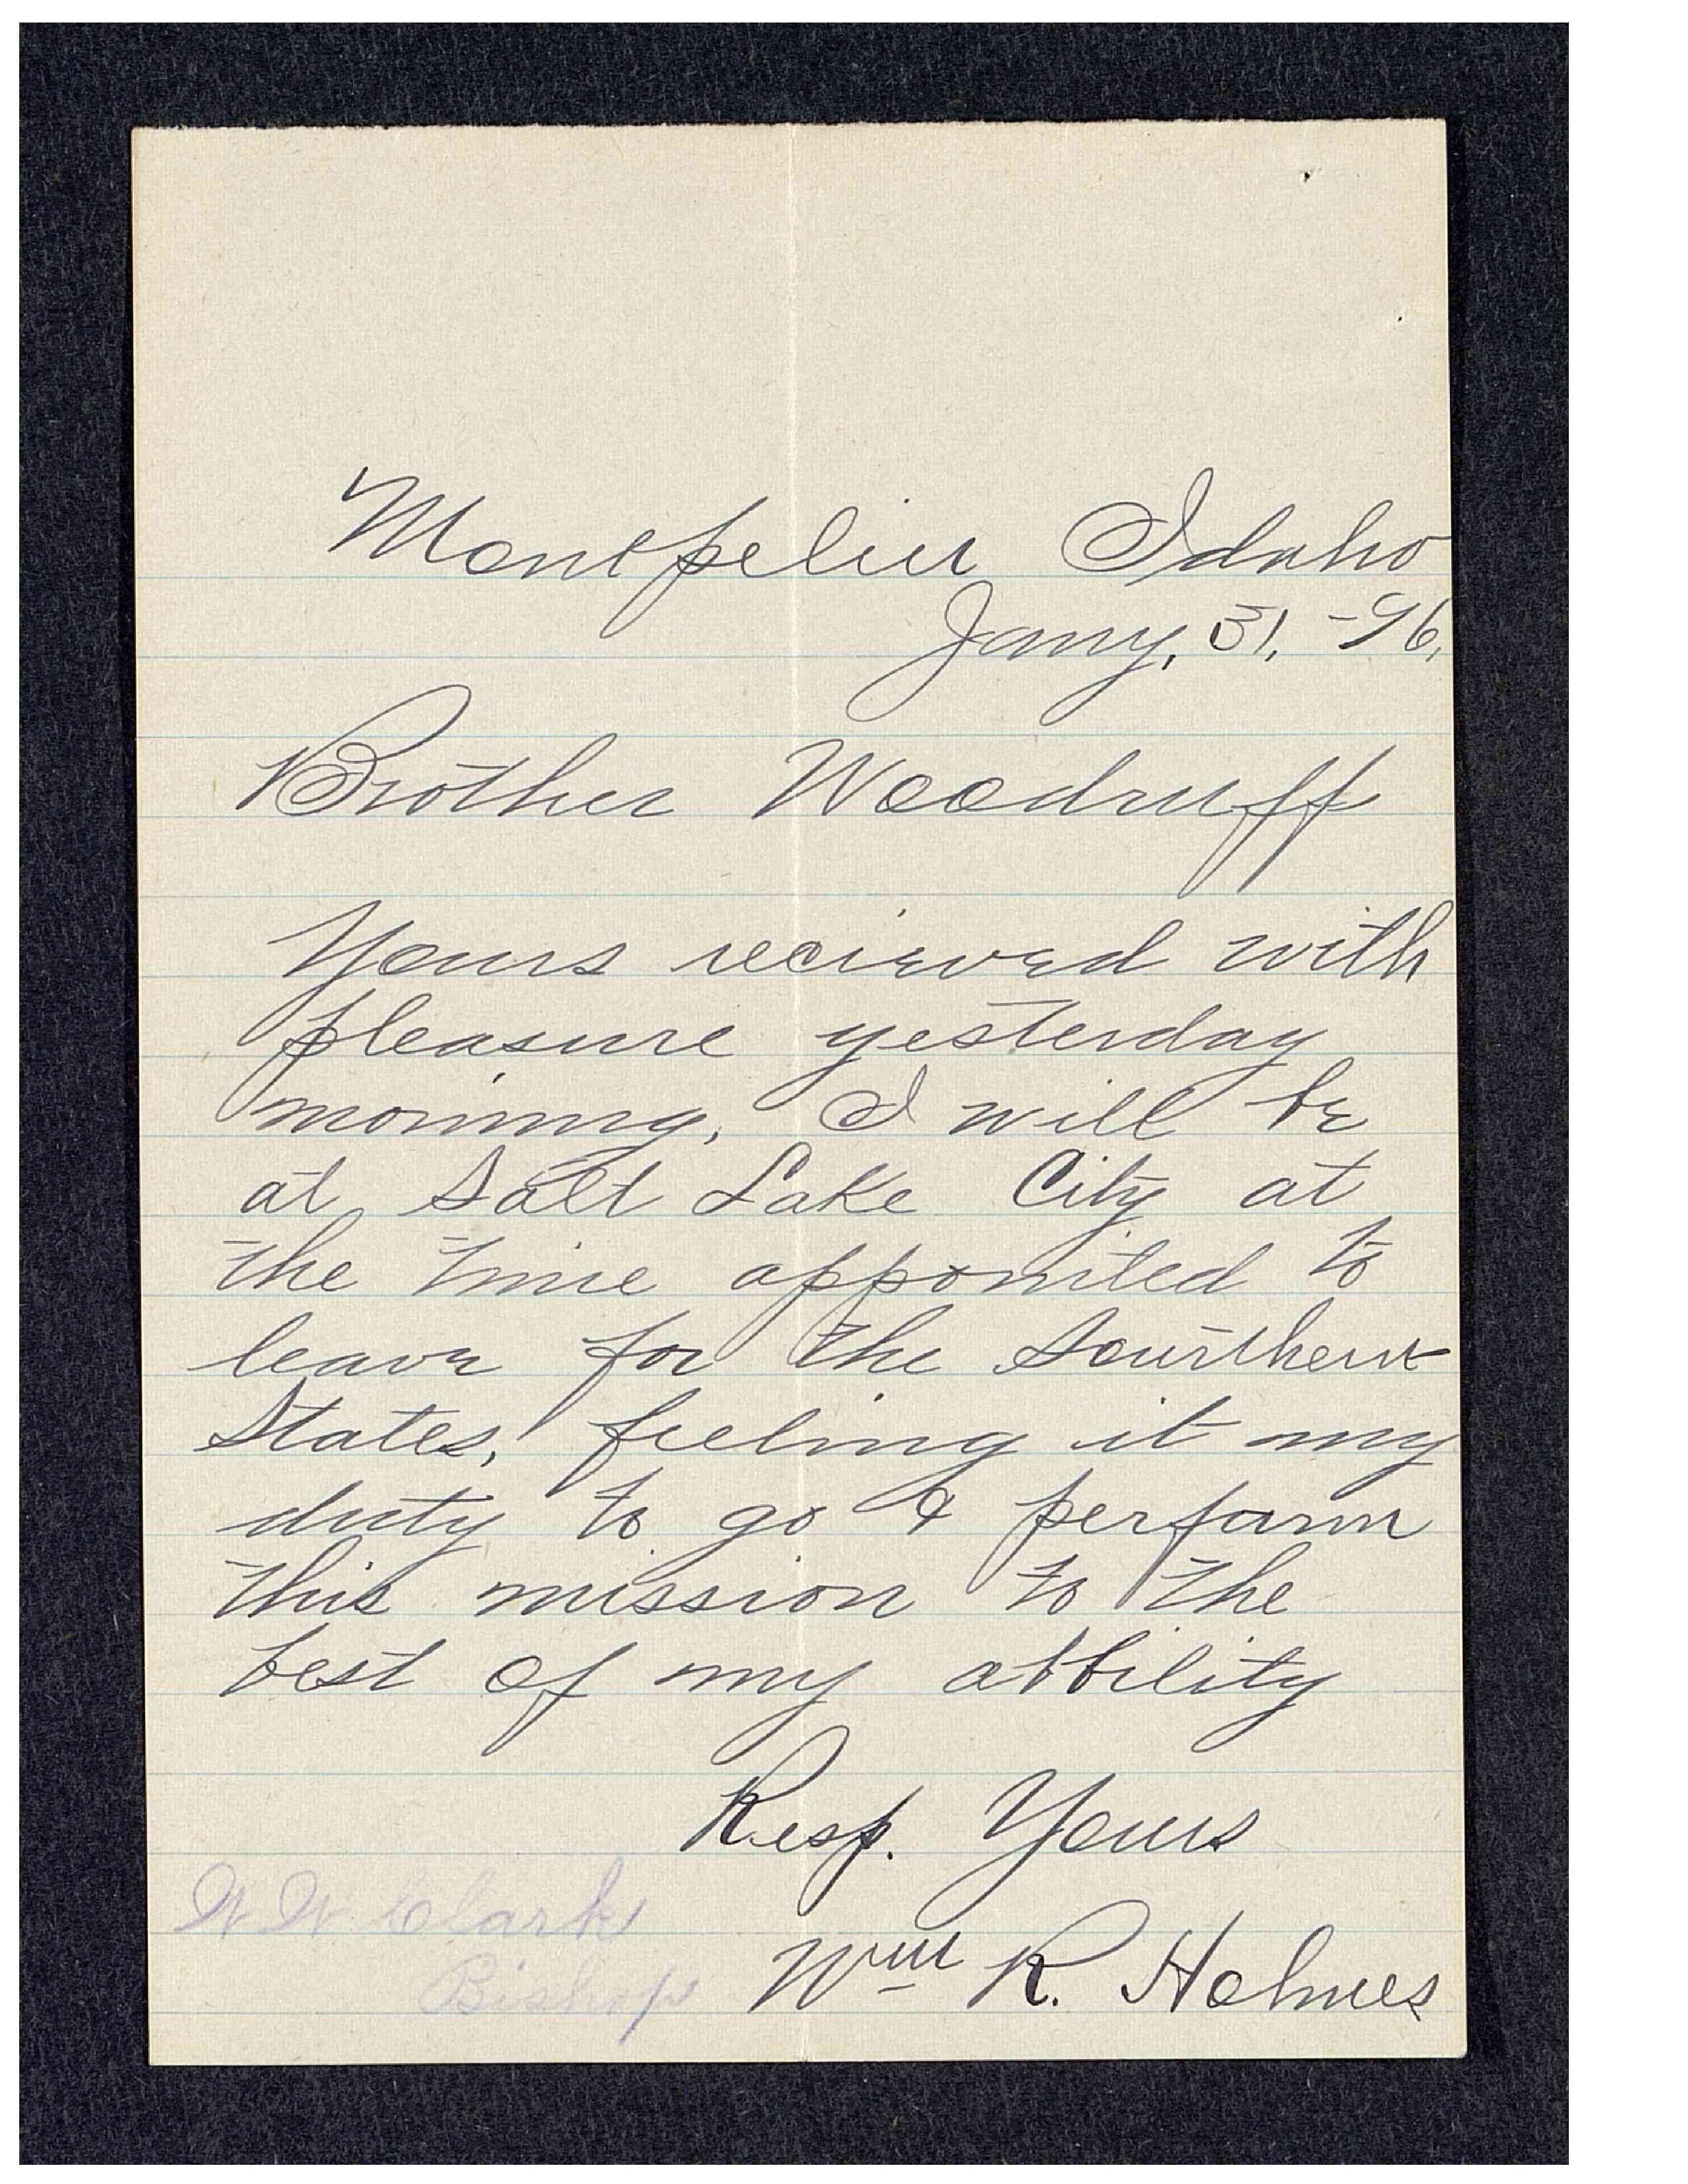 Montpelier Idaho
Jany, 31, -96,
Brother Woodruff
Yours recieved with
pleasure yesterday
morning, I will be
at Salt Lake City at
the time appointed to
leave for the Southern
States, feeling it my
duty to go & perform
this mission to the
best of my abbility
Resp. Yours
Wm R. Holmes
W W Clark
Bishop